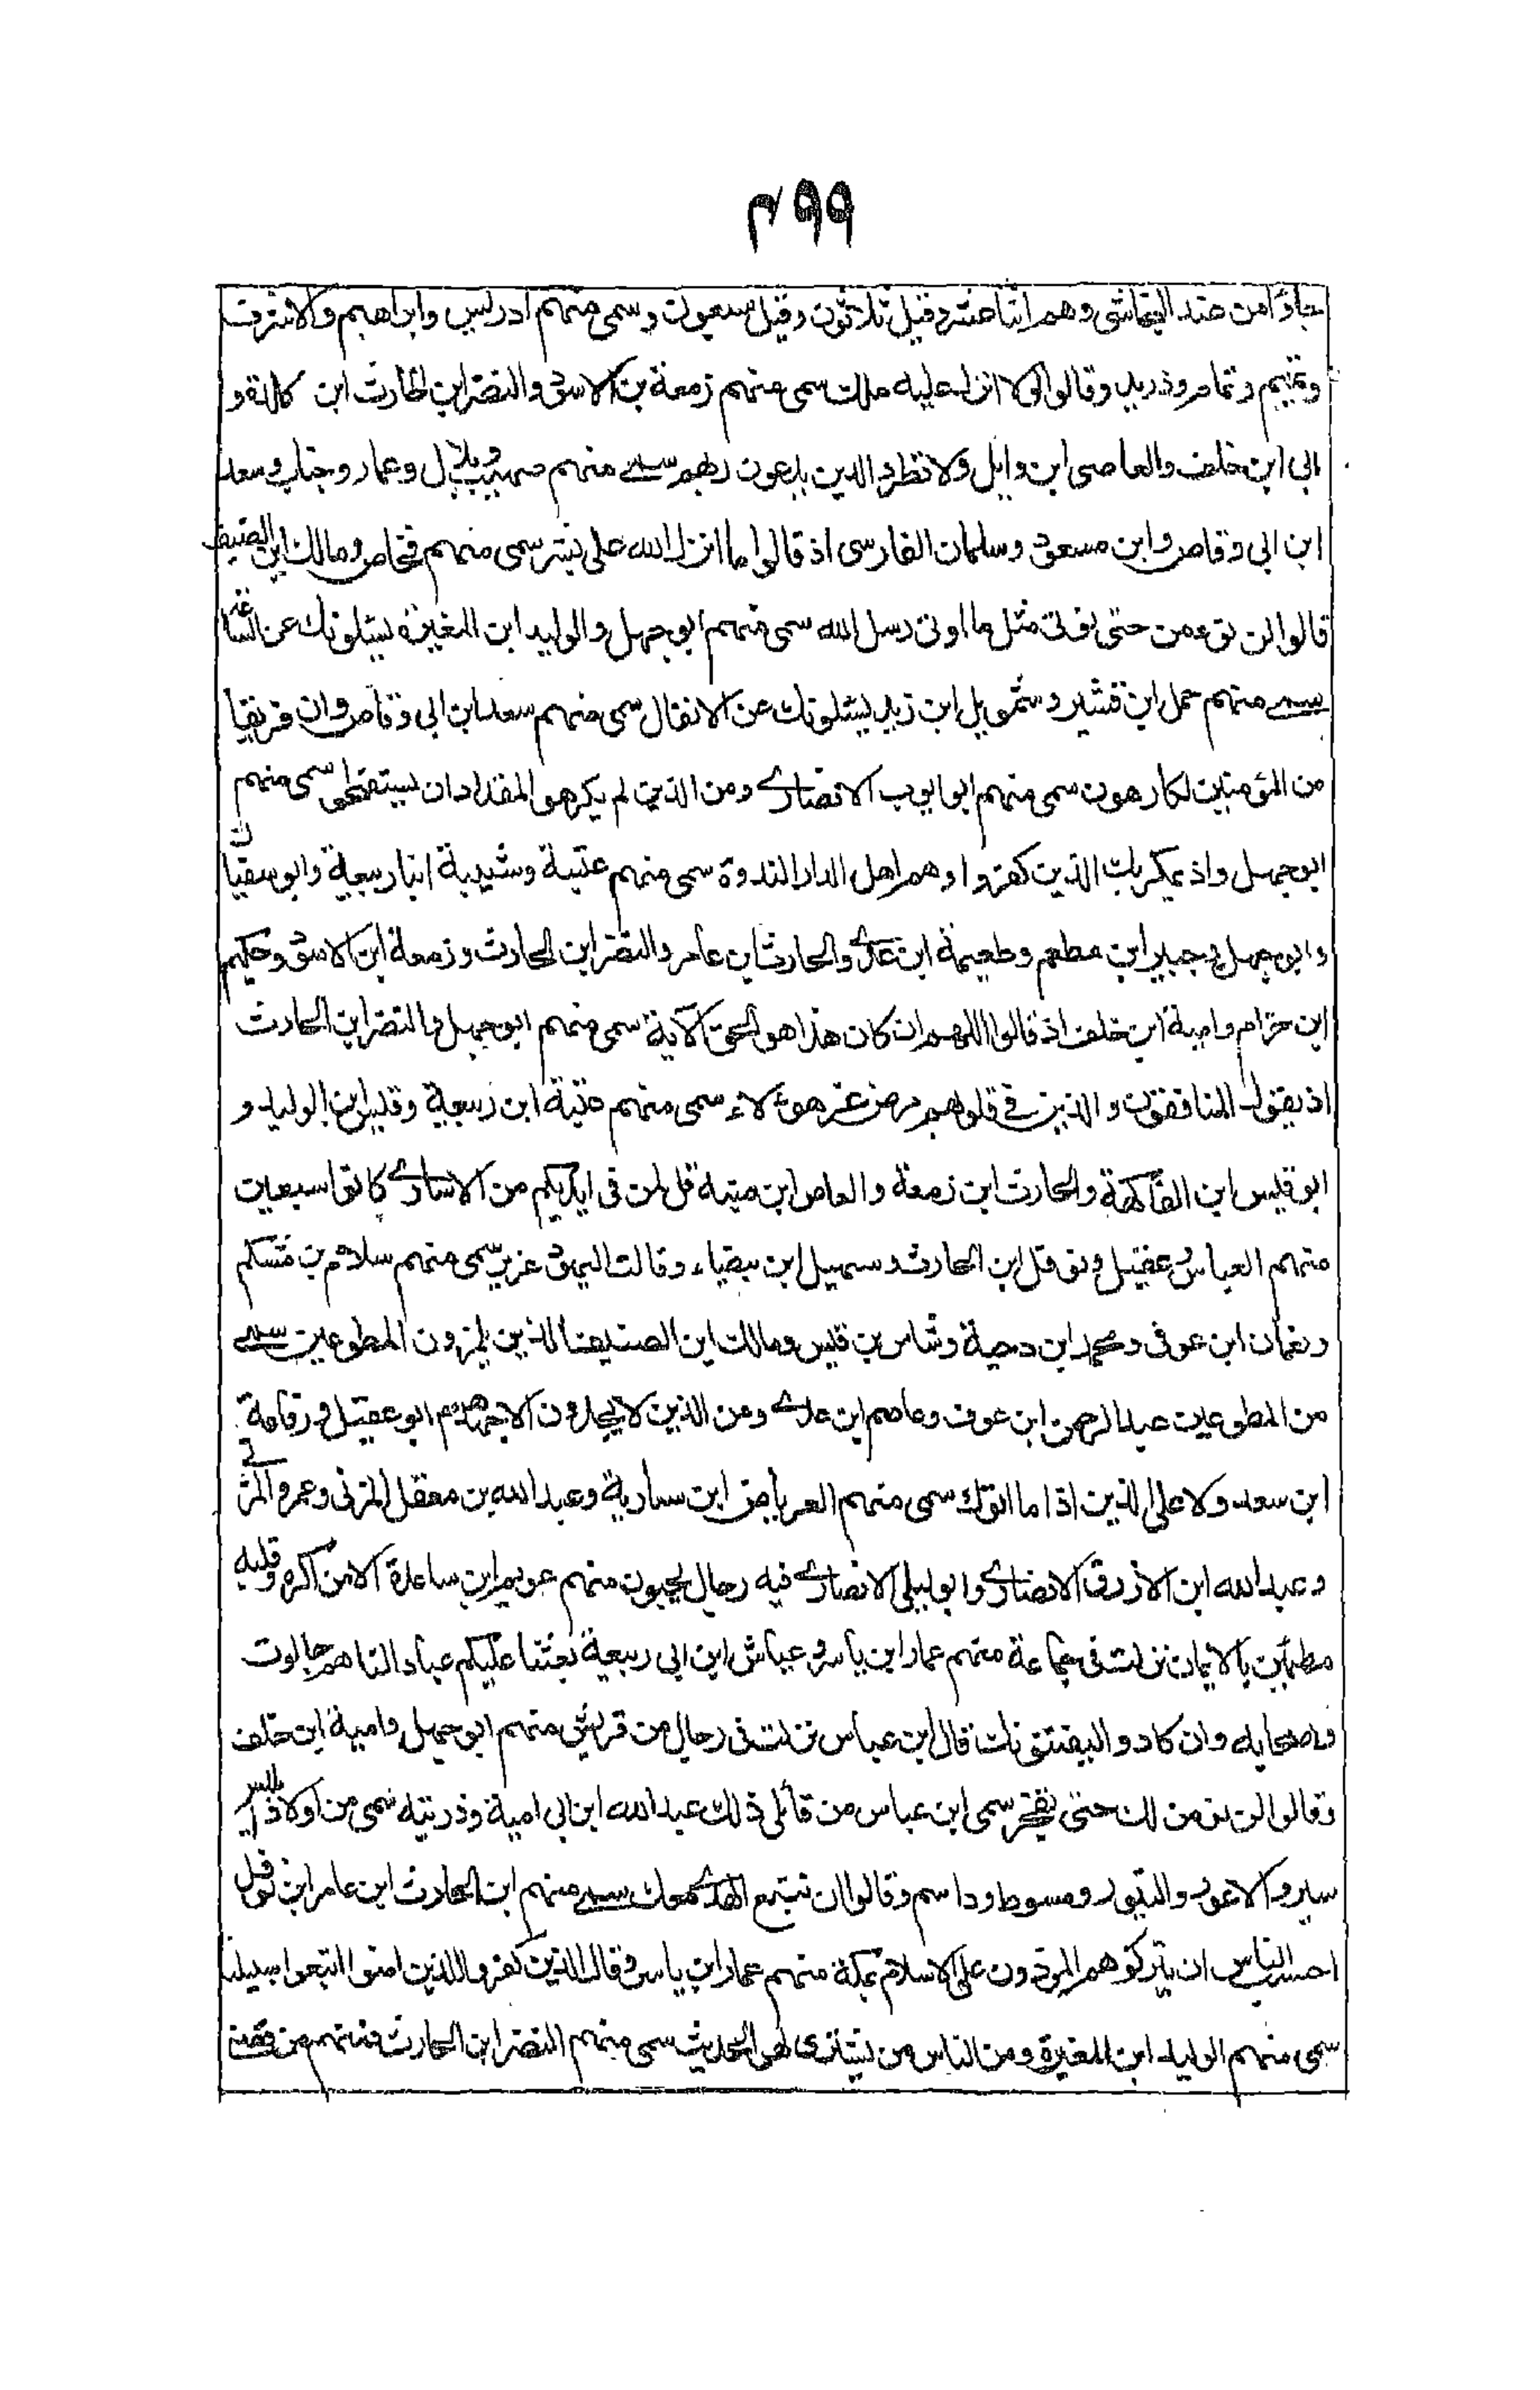 ٢٩٩
جاؤا من عند النجاشى وهم اثنا عشر وقيل ثلاثون وقيل سبعون وسمى منهم ادريس وابراهيم والاشرف
وتميم وتمام ودريد وقالوا لولا انزل عليه ملك سمى منهم زمعة بن الاسود والنضر ابن الحارث ابن كلدة و
ابى ابن خلف والعاصى ابن وايل ولا تطرد الذين يدعون ربهم سمى منهم صهيب وبلال وعمار وخباب وسعد
ابن ابى وقاص وابن مسعود وسلمان الفارسى اذ قالوا ما انزل الله على بشر سمى منهم فنحاص ومالك ابن الضيف
قالوا لن نؤمن حتى نؤتى مثل ما اوتى رسل الله سمى منهم ابو جهل والوليد ابن المغيرة يسئلونك عن الساعة
سمى منهم حمل ابن قشير وشمويل ابن زيد يسئلونك عن الانفال سمى منهم سعد ابن ابى وقاص وان فريقا
من المؤمنين لكارهون سمى منهم ابو ايوب الانصارى ومن الذين لم يكرهوا المقداد ان تستفتحوا سمى منهم
ابو جهل واذ يمكر بك الذين كفروا وهم اهل الدار الندوة سمى منهم عتبة وشيبة ابنا ربيعة وابو سفيان
وابو جهل وجبير ابن مطعم وطعيمة ابن عدى والحارث ابن عامر والنضر ابن الحارث وزمعة ابن الاسود وحكيم
ابن حزام وامية ابن خلف اذ قالوا اللهم ان كان هذا هو الحق الآية سمى منهم ابو جهل والنضر ابن الحارث
اذ يقول المنافقون والذين فى قلوبهم مرض غر هؤلاء سمى منهم عتبة ابن ربيعة وقيس ابن الوليد و
ابو قيس ابن الفاكهة والحارث ابن زمعة والعاص ابن منبه قل لمن فى ايديكم من الاسارى كانوا سبعين
منهم العباس وعقيل ونوفل ابن الحارث وسهيل ابن بيضاء وقالت اليهود عزير سمى منهم سلام بن مشكم
ونعمان ابن عوفى ومحمد ابن دحية وشاس بن قيس ومالك ابن الصيف الذين يلمزون المطوعين سمى
من المطوعين عبد الرحمن ابن عوف وعاصم ابن عدى ومن الذين لا يجدون الا جهدهم ابو عقيل ورفاعة
ابن سعد ولا على الذين اذا ما اتوك سمى منهم العرباض ابن سارية وعبد الله بن مغفل المزنى وعمرو المزنى
وعبد الله ابن الازرق الانصارى وابو ليلى الانصارى فيه رجال يحبون منهم عويمر ابن ساعدة الا من اكره وقلبه
مطمئن بالايمان نزلت فى جماعة منهم عمار ابن ياسر وعياش ابن ابى ربيعة بعثنا عليكم عبادا لنا هم جالوت
واصحابه وان كادوا ليفتنونك قال ابن عباس نزلت فى رجال من قريش منهم ابو جهل وامية ابن خلف
وقالوا لن نؤمن لك حتى تفجر سمى ابن عباس من قائلى ذلك عبد الله ابن ابى امية وذريته سمى من اولاد ابليس
سبر والاعور والثبور ومسوط وداسم وقالوا ان نتبع الهدى معك سمى منهم ابن الحارث ابن عامر ابن نوفل
احسب الناس ان يتركوا هم المؤذون على الاسلام بمكة منهم عمار ابن ياسر وقال الذين كفروا للذين امنوا اتبعوا سبيلنا
سمى منهم الوليد ابن المغيرة ومن الناس من يشترى لهو الحديث سمى منهم النضر ابن الحارث فمنهم من قضى